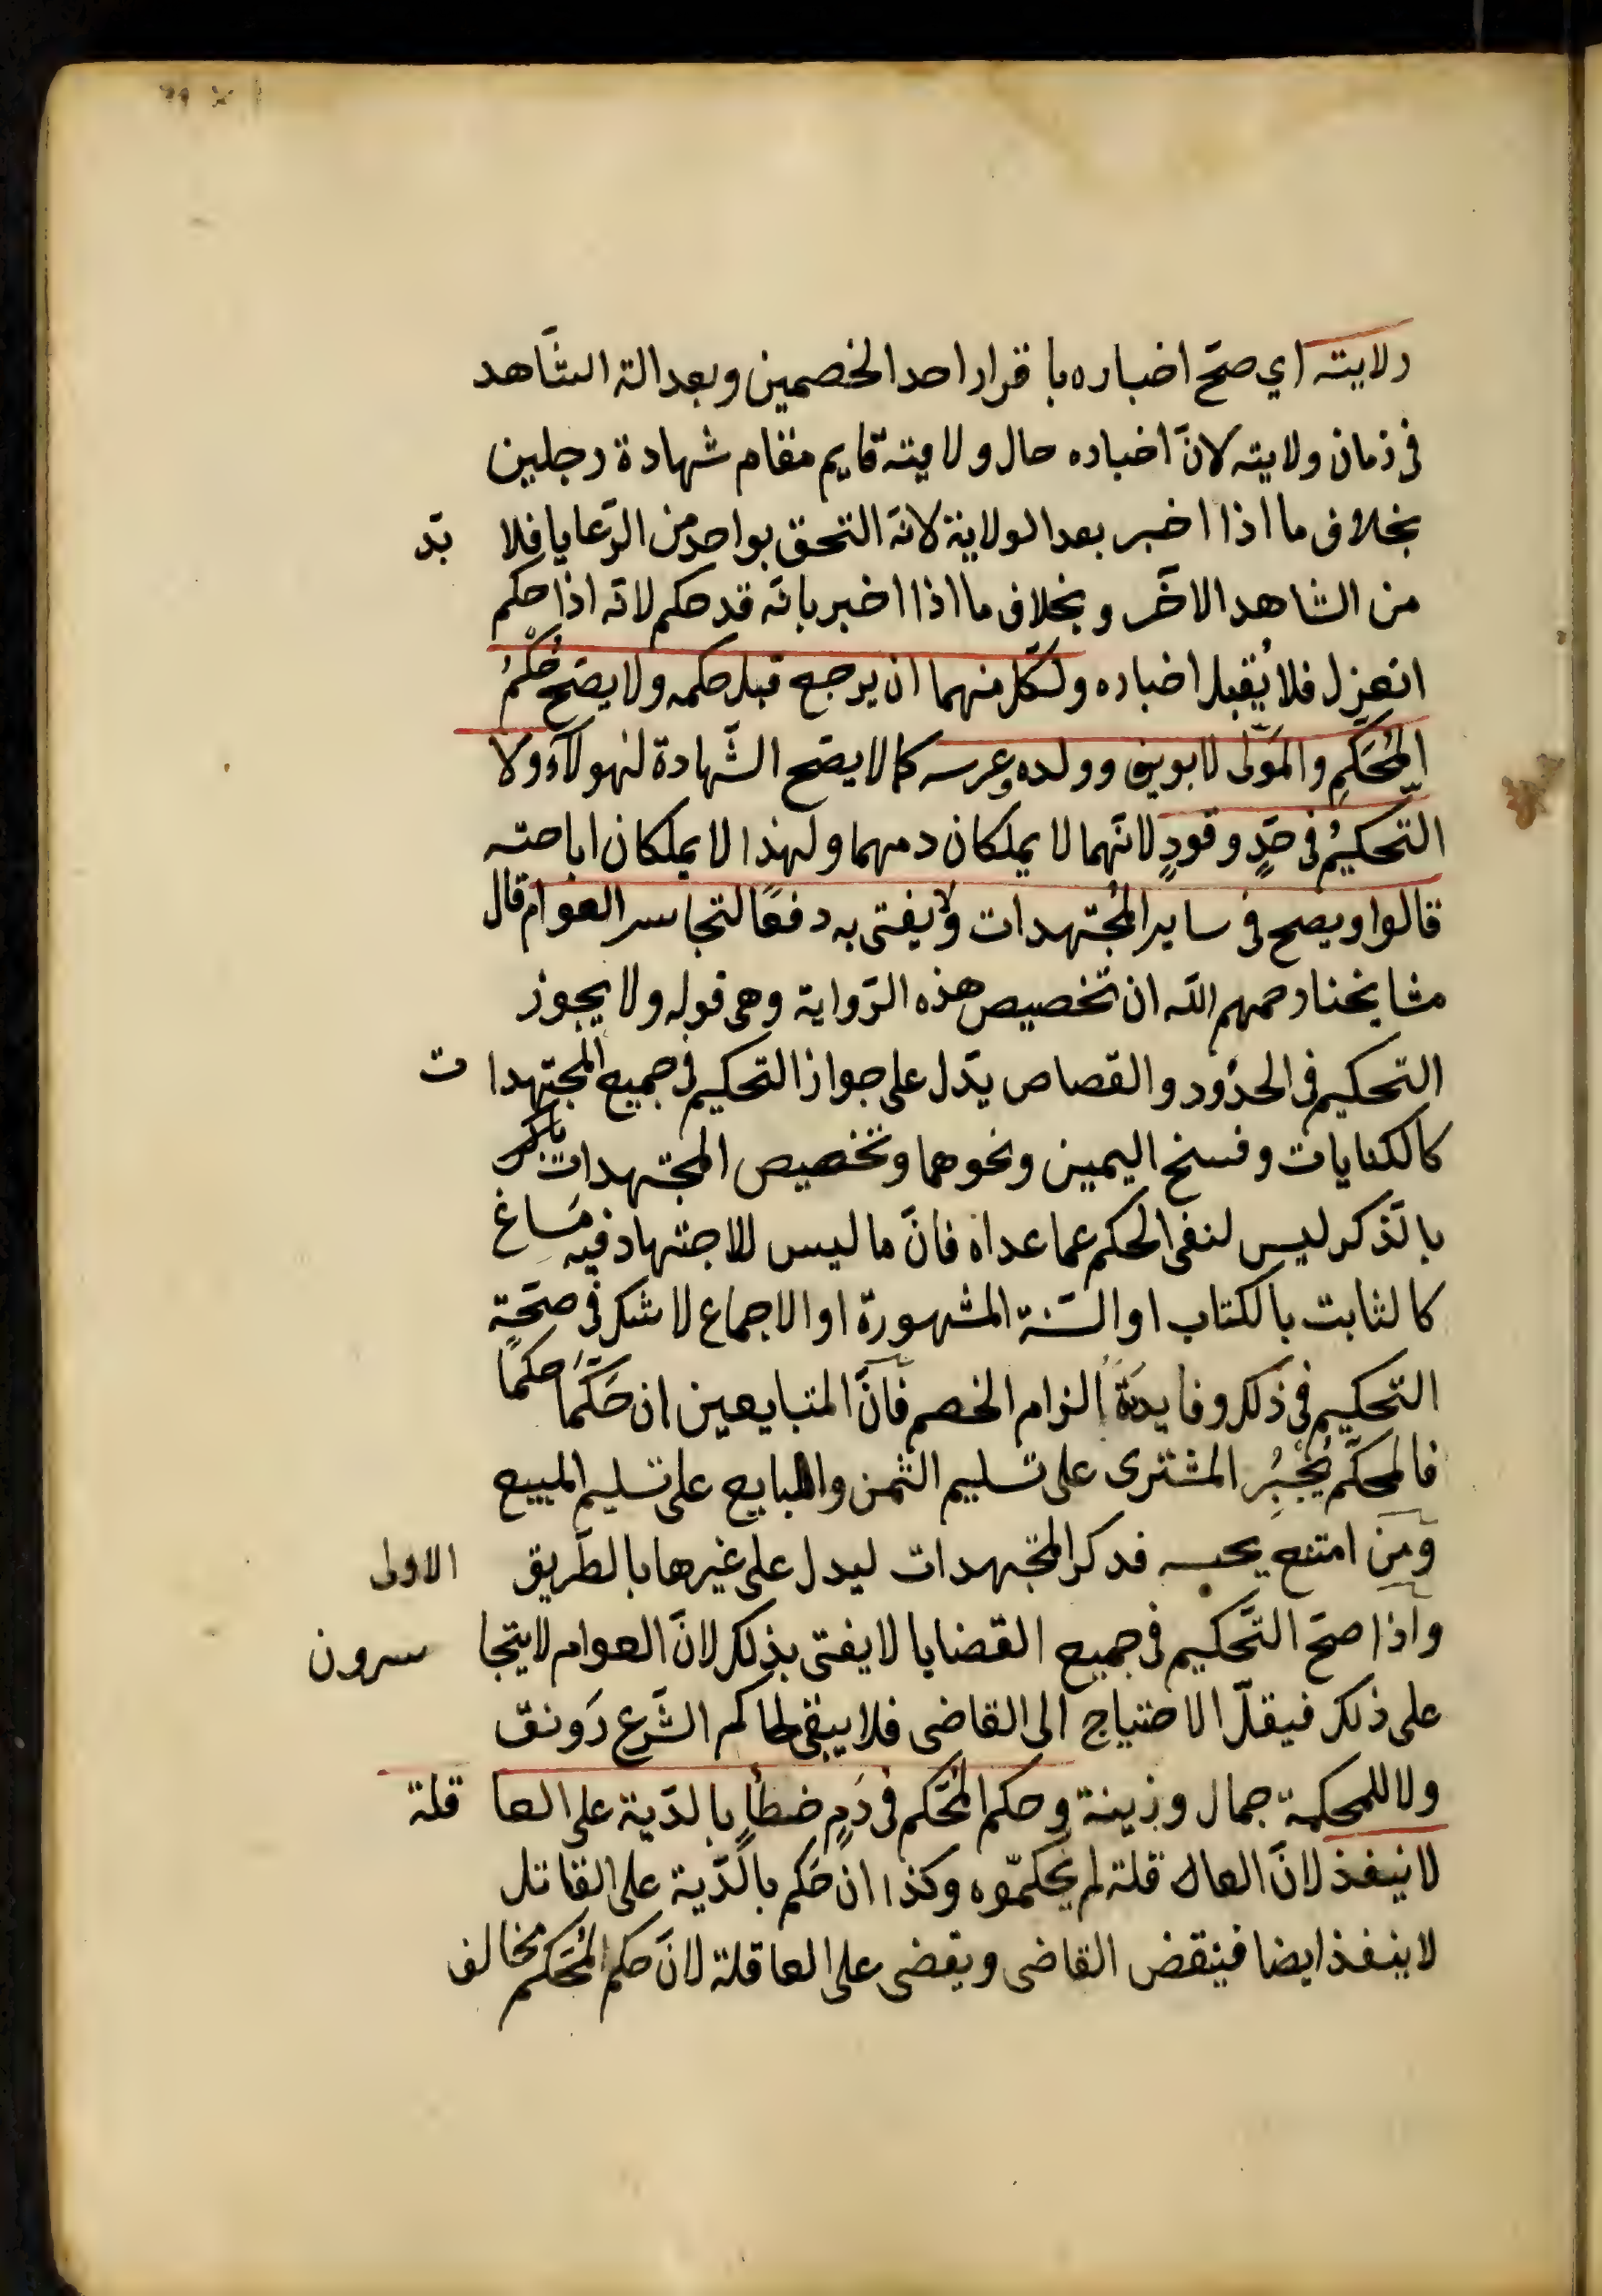 ولايته اي صحّ اخباره باقرار احد الخصمين وبعدالة الشّاهد
فى زمان ولايته لانّ اخباره حال ولايته قايم مقام شهادة رجلين
بخلاف ما اذا اخبر بعد الولاية لانّه التحق بواحد من الرّعايا فلا بدّ
من الشاهد الاخَر وبخلاف ما اذا اخبر بانّه قد حكم لانّه اذا حكم
انعزل فلا يُقبل اخباره ولكلّ منهما ان يرجع قبل حكمه ولا يصحّ حُكْمُ
المُحَكَّمِ والمَوَلّى لابويه وولده وعرسه كما لا يصّح الشّهادة لهولآء ولا
التّحكيُم فى حَدٍّ وقودٍ لانّهما لا يملكان دمهما ولهذا لا يملكان اباحته
قالوا ويصح فى ساير المُجتهدات ولا يفتى به دفعًا لتجاسر العوام قال
مشايخنا رحمهم اللّه ان تخصيص هذه الرّواية وهى قوله ولا يجوز
التحكيم فى الحدُود والقصاص يدّل على جواز التحكيم فى جميع المجتهدات
كالكنايات وفسخ اليمين ونحوهما وتخصيص المجتهدات
بالذّكر ليس لنفى الحكم عما عداه فانّ ما ليس للاجتهاد فيه مَساغ
كالثابت بالكتاب او السّنة المشهورة او الاجماع لا شك فى صحّة
التحكيم فى ذلك وفايدَة الزام الخصم فانّ المتبايعين ان حَكَّمَا حكمًا
فالمحكّم يُجْبِرُ المشترى على تسليم الثّمن والبايع على تسليم المبيع
ومَن امتنع يحبسه فذكر المجتهدات ليدل على غيرها بالطّريق الاولى
واذا صحّ التّحكيم فى جميع القضايا لا يفتى بذلك لانّ العوام لا يتجاسرون
على ذلك فيقلّ الاحتياج الى القاضى فلا يبقى لحاكم الشّرع رَونق
ولا للمحكمة جمال وزينة وحكم المُحَّكم فى دَمٍ خطأٍ بالدّية على العاقلة
لا ينفذ لانّ العاقلة لم يُحكمّوه وكذا ان حَكم بالّدية على القاتل
لا ينفذ ايضا فينقض القاضى ويقضى على العاقلة لانّ حكم المُحَكم مخالف